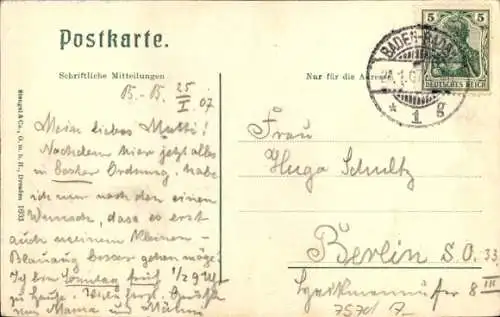 Postkarte.
Schriftliche Mitteilungen
Nur für die Adresse
B.-B. 25/I 07
Mein liebes Mutti!
Nachdem hier jetzt alles
in bester Ordnung, habe
ich nur noch den einen
Wunsch, dass es erst
auch meinem Kleinen
Blauaug besser gehen möge!
Ich bin Sonntag früh 1/2 9 Uhr
zu Hause.
von Mama und
Stengel & Co., G. m. b. H., Dresden
5 5
DEUTSCHES REICH
BADEN-BADEN
* 1 g
Frau
Hugo Schultz
Berlin S.O. 33.
8 III